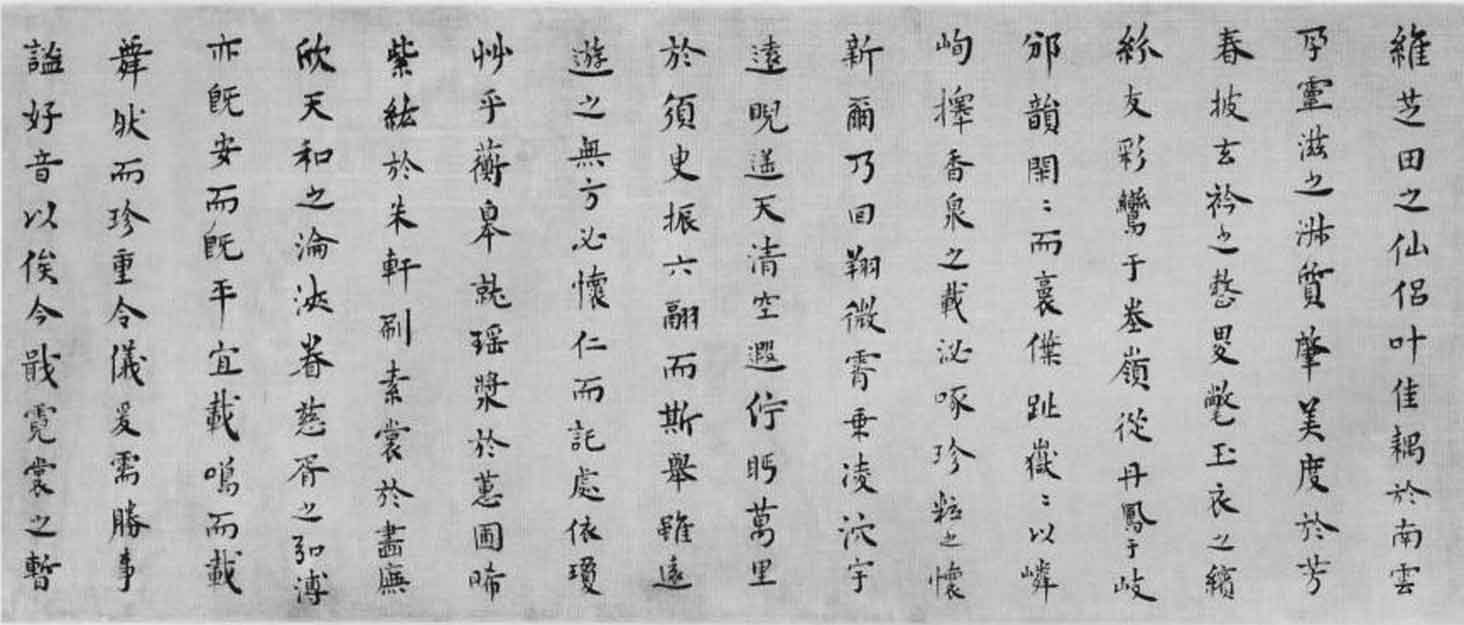 維芝田之仙侶叶佳耦於南雲
孕靈滋之淋質肇美度於芳
春披玄衿之愁旻氅玉衣之繽
紛友彩鸞于峚嶺從丹鳳于岐
邠韻閑〻而裹僷趾嶽〻以嶙
峋擇香泉之載泌啄珍粒之懷
新爾乃回翔微霄乗凌泬宇
遠睨遥天清空遐佇眄萬里
於須臾振六翮而斯舉雖遠
遊之無方必懷仁而託處依瓊
艸乎蘅皋就瑶漿於蕙圃晞
紫紘於朱軒刷素裳於畫廡
欣天和之淪浹眷慈胥之弘溥
亦既安而既平宜載鳴而載
舞然而珍重令儀爰需勝事
謐好音以俟今戢霓裳之暫